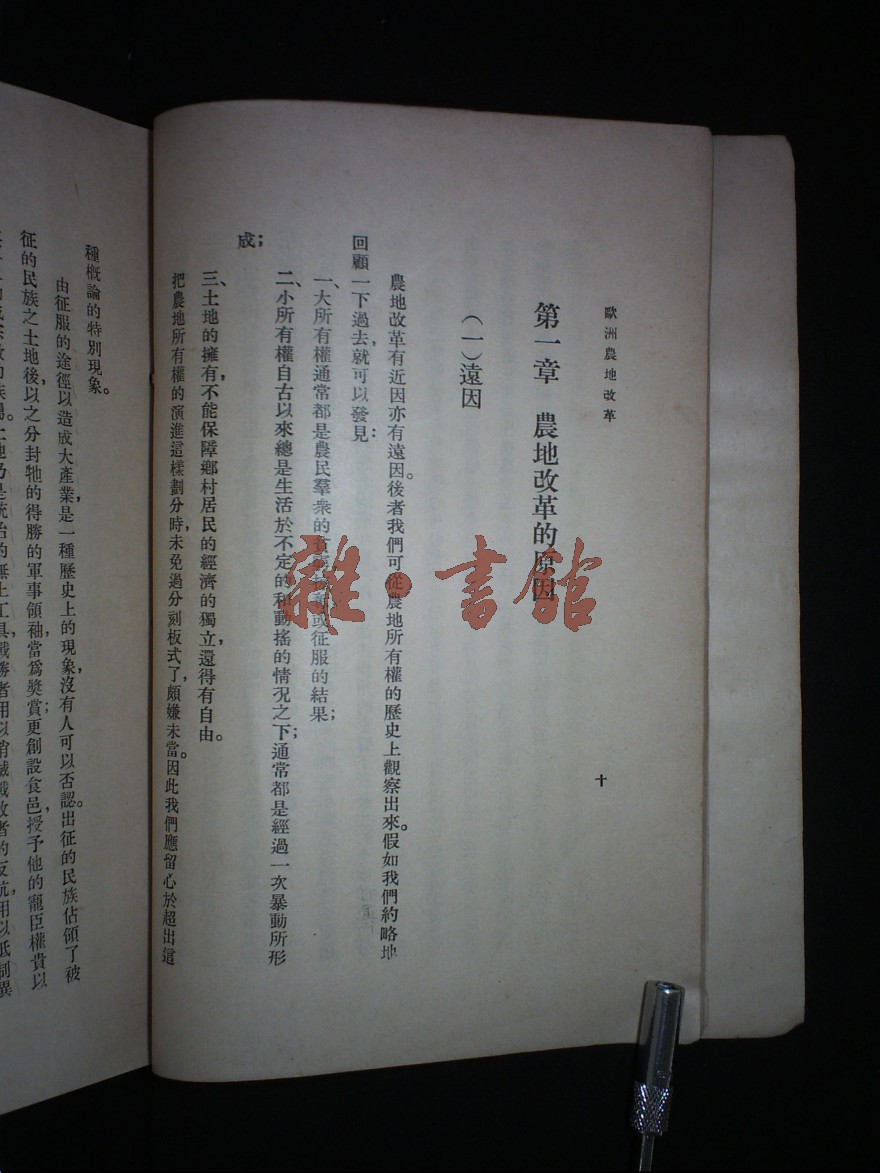 歐洲農地改革
十
第一章　農地改革的原因
（一）遠因
農地改革有近因亦有遠因。後者我們可從農地所有權的歷史上觀察出來。假如我們約略地
回顧一下過去，就可以發見：
一、大所有權通常都是農民羣衆的貧或征服的結果；
二、小所有權自古以來總是生活於不定的和動搖的情况之下；通常都是經過一次暴動所形
成；
三、土地的擁有，不能保障鄉村居民的經濟的獨立，還得有自由。
把農地所有權的演進這樣劃分時，未免過分刻板式了，頗嫌未當。因此我們應留心於超出這
種概論的特別現象。
由征服的途徑以造成大產業，是一種歷史上的現象，沒有人可以否認。出征的民族佔領了被
征的民族之土地後，以之分封牠的得勝的軍事領袖當爲獎賞；更創設食邑，授予他的寵臣權貴以
土地乃是統治的無上工具，戰勝者用以消滅戰敗者的反抗，用以抵制異
雜·書館